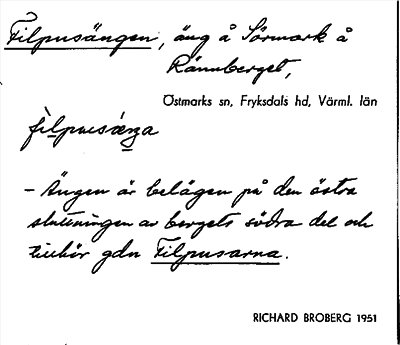 Filpusängen, äng å Sörmark å
Rännberget,
Östmarks sn, Fryksdals hd, Värml. län
filpusæŋa
– Ängen är belägen på den östra
sluttningen av bergets södra del och
tillhör gdn Filpusarna.
RICHARD BROBERG 1951